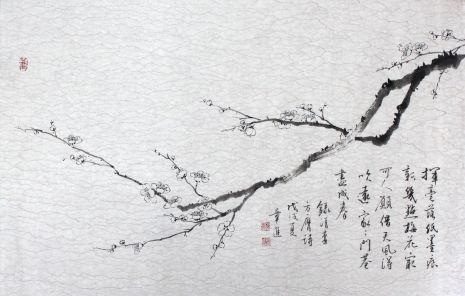 揮毫落紙墨痕
新幾點梅花最
可人願借天風得
吹遠家々門巷
盡成春
錄清李
方膺詩
戊戌夏